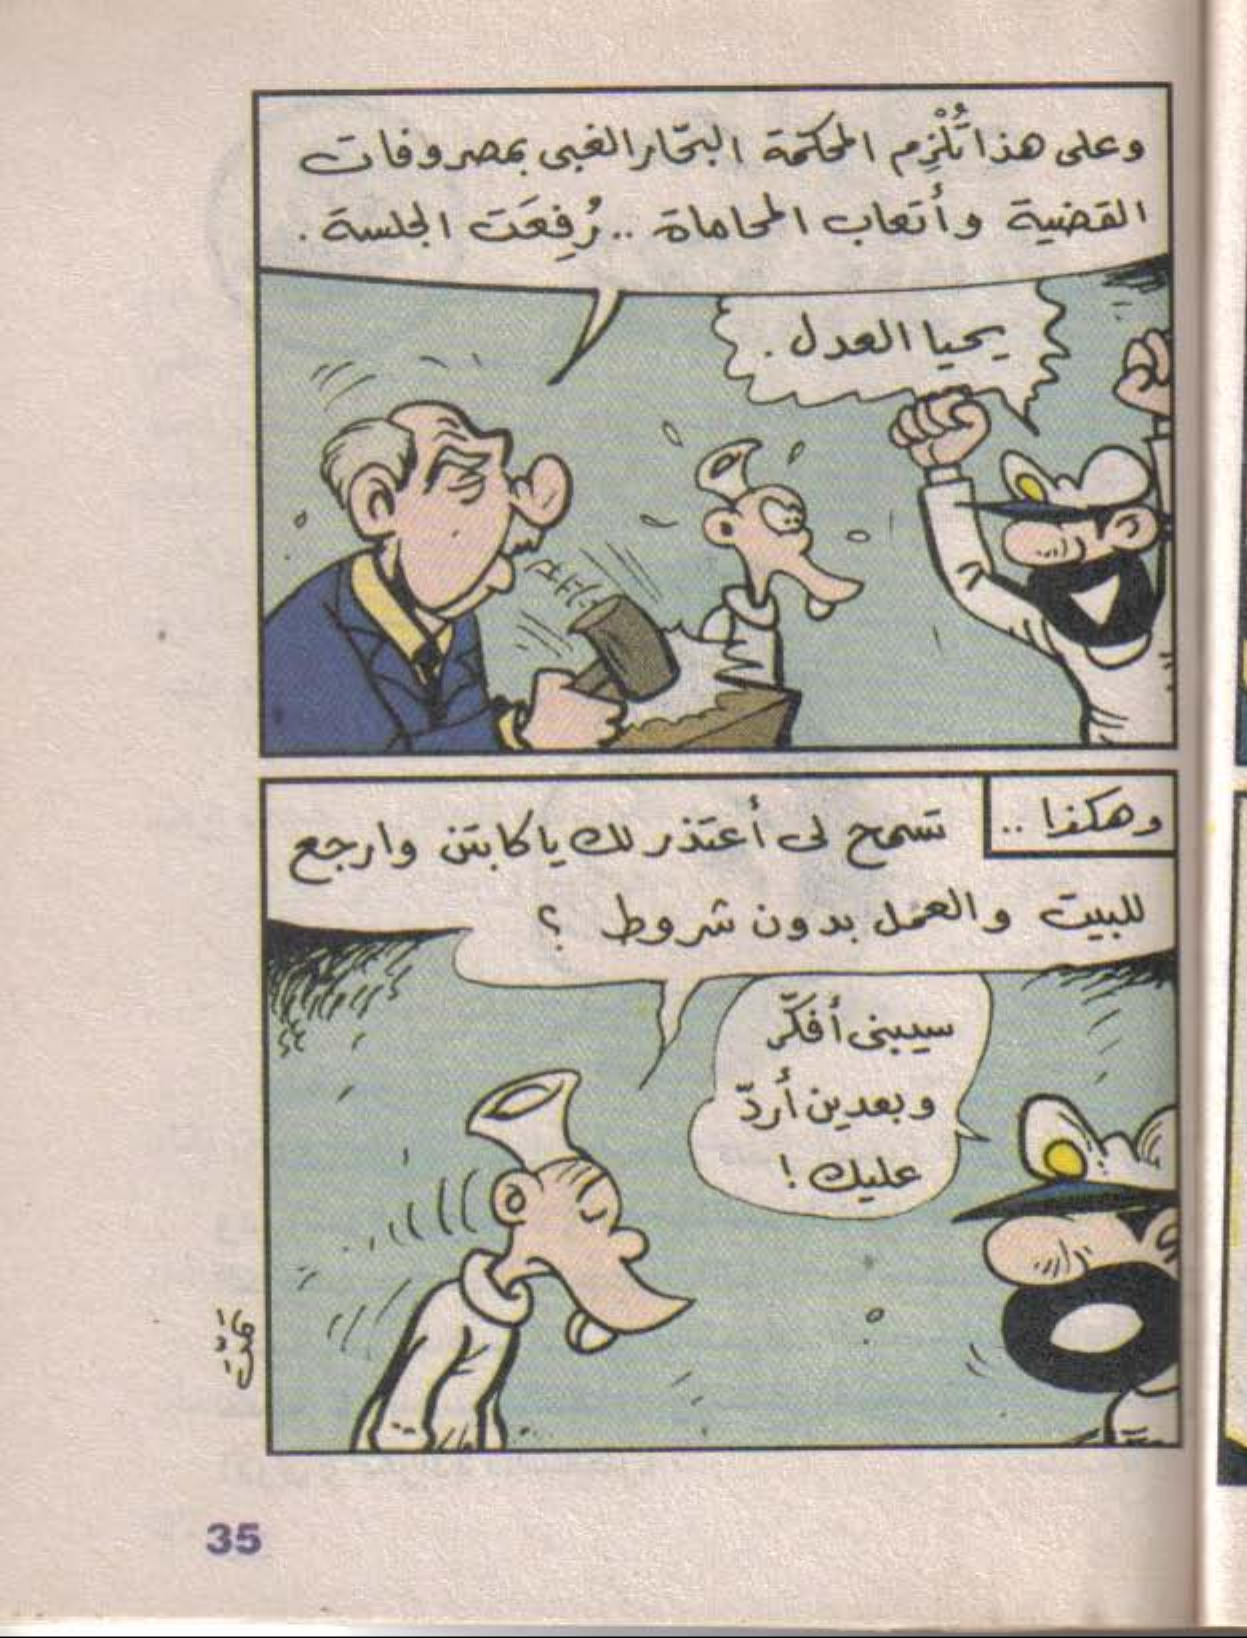 وعلى هذا تُلْزِم المحكمة البحّار الغبى بمصروفات
القضية وأتعاب المحاماة .. رُفِعَت الجلسة .
يحيا العدل .
وهكذا ..
تسمح لى أعتذر لك ياكابتن وارجع
للبيت والعمل بدون شروط ؟
سيبنى أفكّر
وبعدين أردّ
عليك !
35